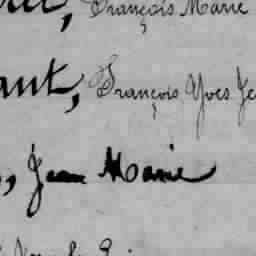 François Marie
ant, François Yves Je
, Jean Marie